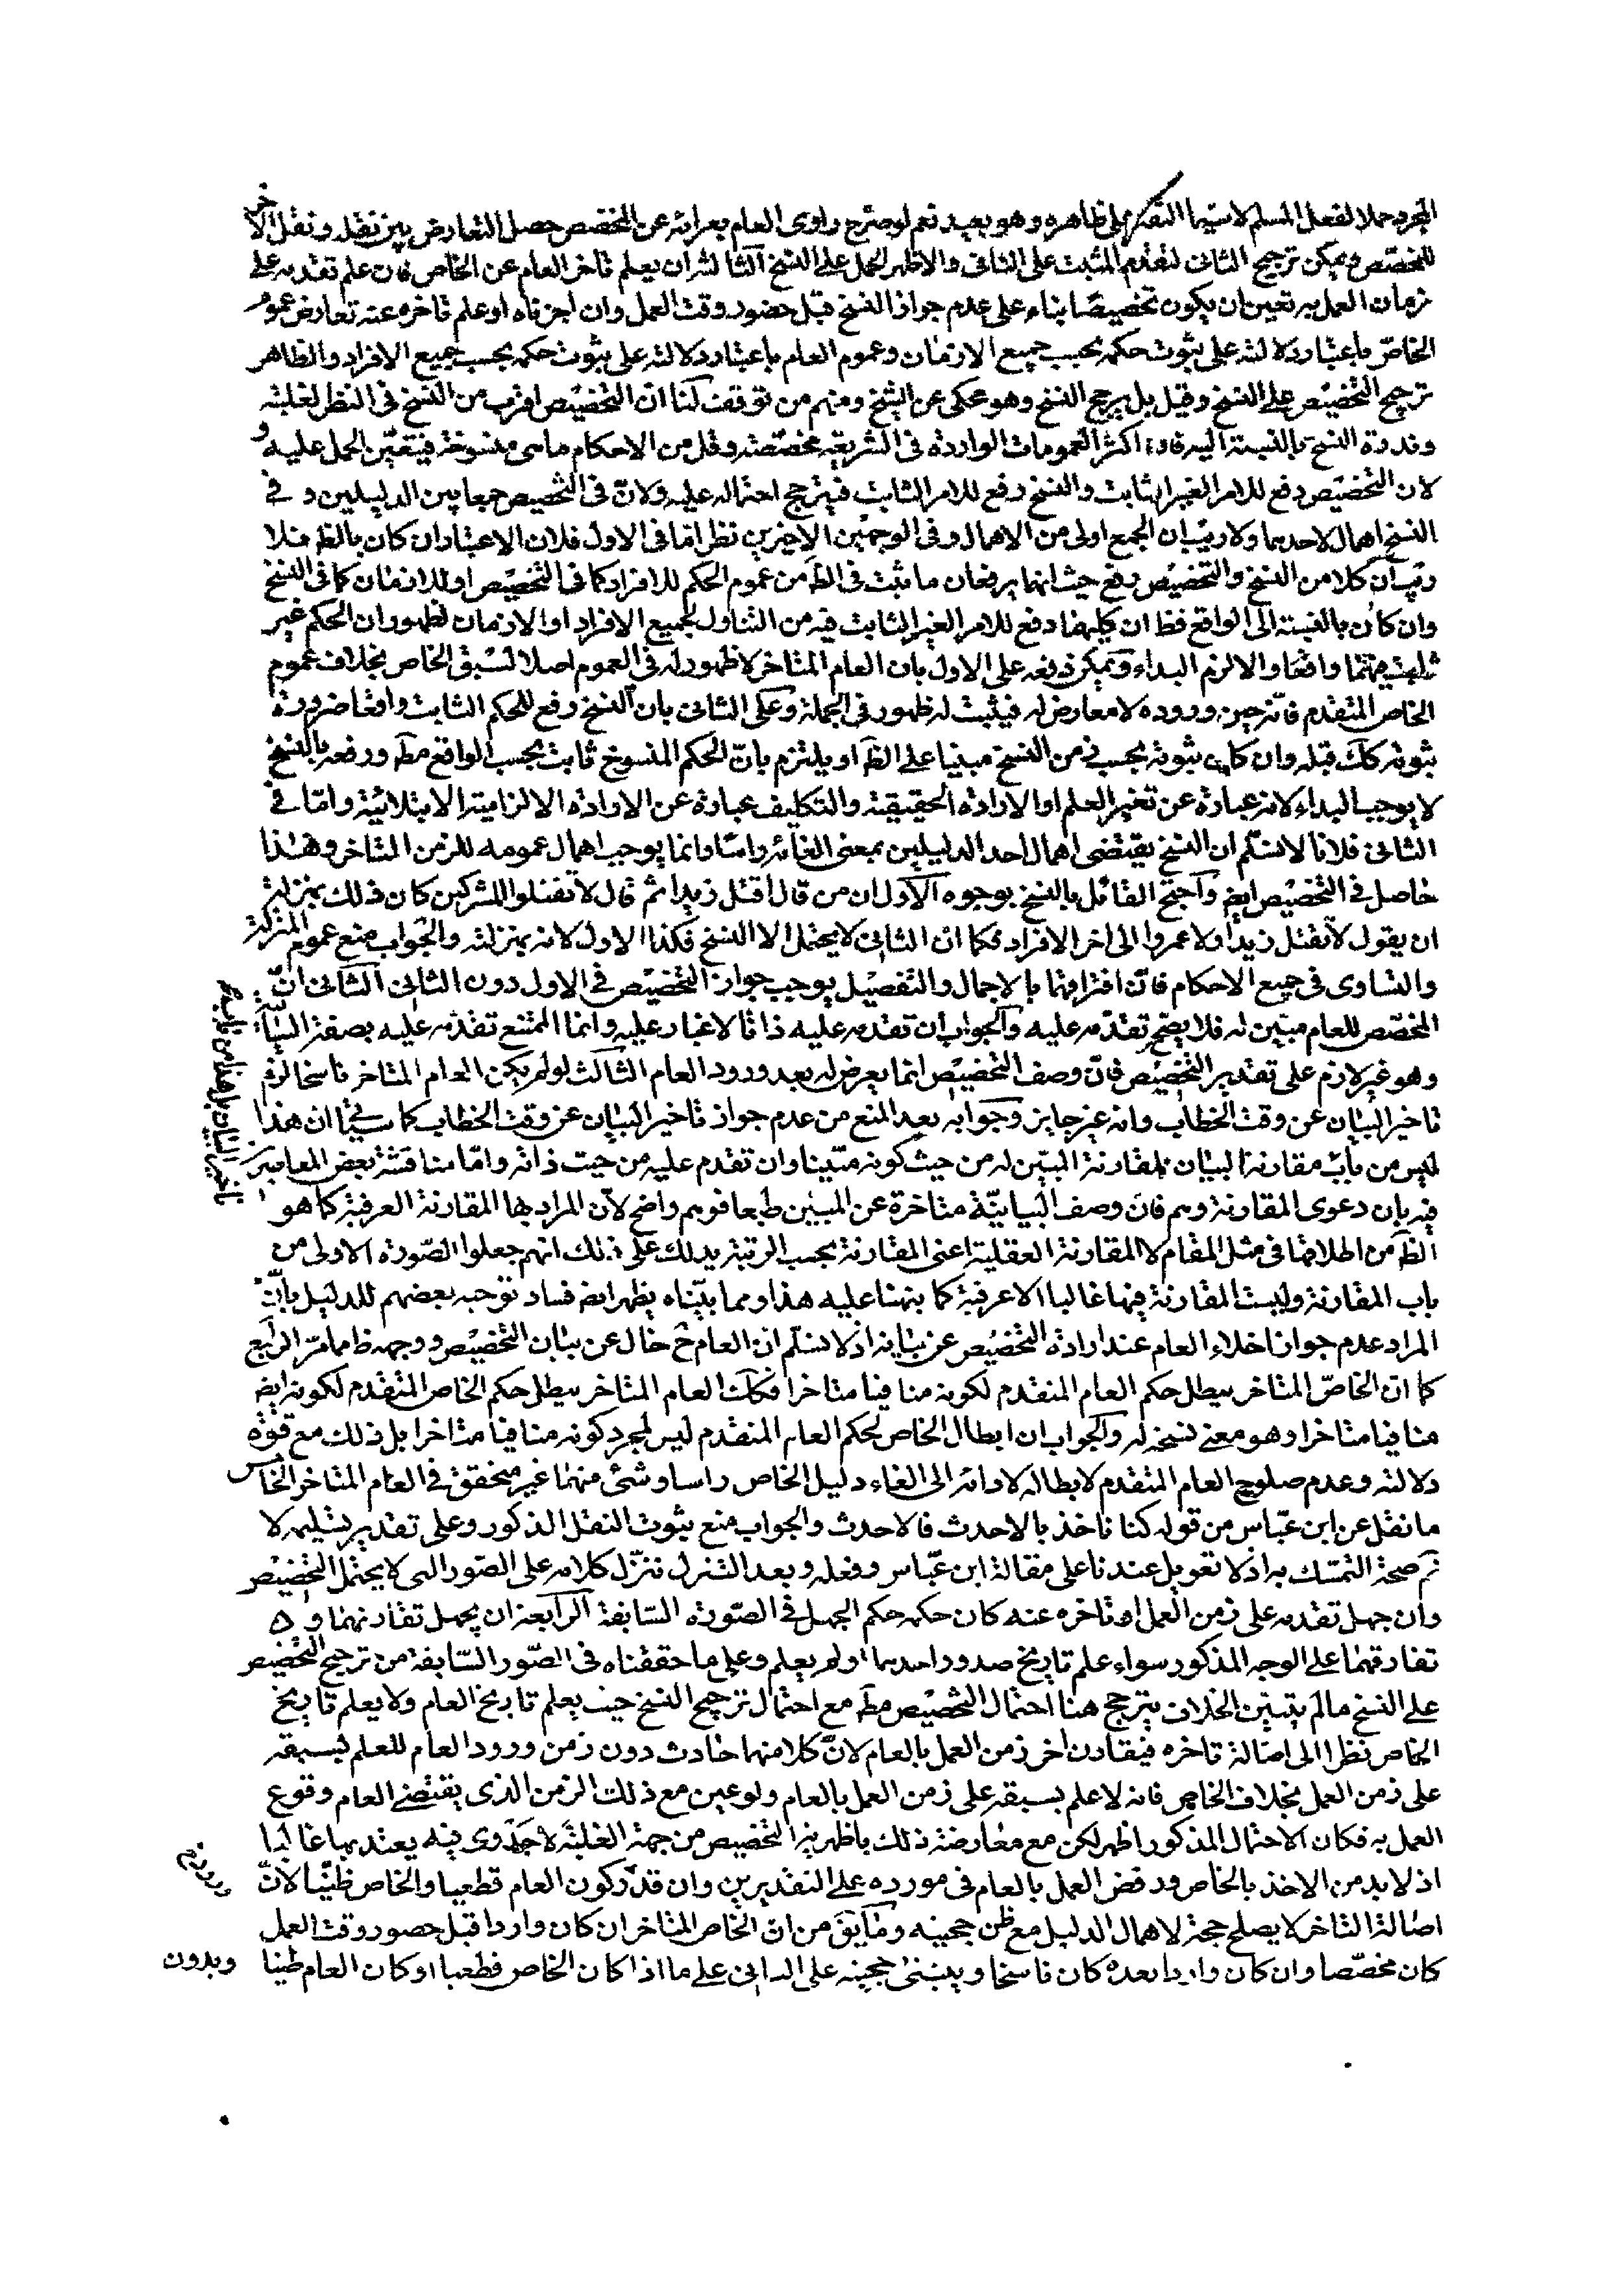 المجرد حملا لفعل المسلم لا سيما الثقة على ظاهره وهو بعيد نعم لو صرح راوى العام بعرائه عن المخصص حصل التعارض بين نقله ونقل الاخر
للمخصص ويمكن ترجيح الثانى لتقديم المثبت على النافى والاظهر الحمل على النسخ الثالثة ان يعلم تاخر العام عن الخاص فان علم تقدمه على
زمان العمل به تعين ان يكون تخصيصا بناء على عدم جواز النسخ قبل حضور وقت العمل وان اجزناه او علم تاخره عنه تعارض عموم
الخاص باعتبار دلالته على ثبوت حكمه بحسب جميع الازمان وعموم العام باعتبار دلالته على ثبوت حكمه بحسب جميع الافراد والظاهر
ترجيح التخصيص على النسخ وقيل بل يرجح النسخ وهو محكى عن الشيخ ومنهم من توقف لنا ان التخصيص اقرب من النسخ فى النظر لغلبته
وندرة النسخ بالنسبة اليه فان اكثر العمومات الواردة فى الشريعة مخصصة وقل من الاحكام ما هى منسوخة فيتعين الحمل عليه و
لان التخصيص دفع للامر الغير الثابت والنسخ رفع للامر الثابت فيترجح احتماله عليه ولان فى التخصيص جمعا بين الدليلين و فى
النسخ اهمال لاحدهما ولا ريب ان الجمع اولى من الاهمال وفى الوجهين الاخيرين نظر اما فى الاول فلان الاعتبار ان كان بالظ فلا
ريب ان كلا من النسخ والتخصيص رفع حيث انهما يرفعان ما ثبت فى الظ من عموم الحكم للافراد كما فى التخصيص او للازمان كما فى النسخ
وان كان بالنسبة الى الواقع فظ ان كليهما دفع للامر الغير الثابت فيه من التناول لجميع الافراد او الازمان لظهور ان الحكم غير
ثابت فيهما واقعا والا لزم البداء ويمكن دفعه على الاول بان العام المتاخر لا ظهور له فى العموم اصلا لسبق الخاص بخلاف عموم
الخاص المتقدم فانه حين وروده لا معارض له فيثبت له ظهور فى الجملة وعلى الثانى بان النسخ رفع للحكم الثابت واقعا ضرورة
ثبوته كك قبله وان كان ثبوته بحسب زمن النسخ مبنيا على الظ او يلتزم بان الحكم المنسوخ ثابت بحسب الواقع مط ورفعه بالنسخ
لا يوجب البداء لانه عبارة عن تغير العلم او الارادة الحقيقية والتكليف عبارة عن الارادة الالزامية الابتلائية واما فى
الثانى فلانا لا نسلم ان النسخ يقتضى اهمال احد الدليلين بمعنى الغائه راسا وانما يوجب اهمال عمومه للزمن المتاخر وهذا
حاصل فى التخصيص ايض واحتج القائل بالنسخ بوجوه الاول ان من قال اقتل زيدا ثم قال لا تقتلوا المشركين كان ذلك بمنزلة
ان يقول لا تقتل زيدا ولا عمروا الى اخر الافراد فكما ان الثانى لا يحتمل الا النسخ فكذا الاول لانه بمنزلته والجواب منع عموم المنزلة
والتساوى فى جميع الاحكام فان افتراقهما بالاجمال والتفصيل يوجب جواز التخصيص فى الاول دون الثانى الثانى ان
المخصص للعام مبين له فلا يصح تقدمه عليه والجواب ان تقدمه عليه ذاتا لا غبار عليه وانما الممتنع تقدمه عليه بصفة البيانية
وهو غير لازم على تقدير التخصيص فان وصف التخصيص انما يعرض له بعد ورود العام الثالث لو لم يكن العام المتاخر ناسخا لزم
تاخير البيان عن وقت الخطاب وانه غير جايز وجوابه بعد المنع من عدم جواز تاخير البيان عن وقت الخطاب كما سيجئ ان هذا
ليس من باب مقارنة البيان بل مقارنة المبين له من حيث كونه مبينا وان تقدم عليه من حيث ذاته واما مناقشة بعض المعاصرين
فيه بان دعوى المقارنة وهم فان وصف البيانية متاخرة عن المبين طبعا فوهم واضح لان المراد بها المقارنة العرفية كما هو
الظ من اطلاقها فى مثل المقام لا المقارنة العقلية اعنى المقارنة بحسب الرتبة يدلك على ذلك انهم جعلوا الصورة الاولى من
باب المقارنة وليست المقارنة فيها غالبا الا عرفية كما نبهنا عليه هذا ومما بيناه يظهر ايض فساد توجيه بعضهم للدليل بان
المراد عدم جواز اخلاء العام عند ارادة التخصيص عن بيانه اذ لا نسلم ان العام ح خال عن بيان التخصيص ووجهه ظ مما مر الرابع
كما ان الخاص المتاخر يبطل حكم العام المتقدم لكونه منافيا متاخرا فكك العام المتاخر يبطل حكم الخاص المتقدم لكونه ايض
منافيا متاخرا وهو معنى نسخه له والجواب ان ابطال الخاص لحكم العام المتقدم ليس لمجرد كونه منافيا متاخرا بل ذلك مع قوة
دلالته وعدم صلوح العام المتقدم لابطاله لادائه الى الغاء دليل الخاص راسا وشئ منهما غير متحقق فى العام المتاخر الخامس
ما نقل عن ابن عباس من قوله كنا ناخذ بالاحدث فالاحدث والجواب منع ثبوت النقل المذكور وعلى تقدير تسليمه لا
نم صحة التمسك به اذ لا تعويل عندنا على مقالة ابن عباس وفعله وبعد التنزل ننزل كلامه على الصور التى لا يحتمل التخصيص
وان جهل تقدمه على زمن العمل او تاخره عنه كان حكمه حكم الجهل فى الصورة السابقة الرابعة ان يجهل تقارنهما و
تفارقهما على الوجه المذكور سواء علم تاريخ صدور احدهما او لم يعلم وعلى ما حققناه فى الصور السابقة من ترجيح التخصيص
على النسخ ما لم يتبين الخلاف يترجح هنا احتمال التخصيص مط مع احتمال ترجيح النسخ حيث يعلم تاريخ العام ولا يعلم تاريخ
الخاص نظرا الى اصالة تاخره فيقارن اخر زمن العمل بالعام لان كلا منهما حادث دون زمن ورود العام للعلم بسبقه
على زمن العمل بخلاف الخاص فانه لا علم بسبقه على زمن العمل بالعام ولو عين مع ذلك الزمن الذى يقتضى العام وقوع
العمل به فكان الاحتمال المذكور اظهر لكن مع معارضة ذلك باظهرية التخصيص من جهة الغلبة لا جدوى فيه يعتد بها غالبا
اذ لا بد من الاخذ بالخاص ورفض العمل بالعام فى مورده على التقديرين وان قدر كون العام قطعيا والخاص ظنيا لان
اصالة التاخر لا يصلح حجة لاهمال الدليل مع ظن حجيته وما يق من ان الخاص المتاخر ان كان واردا قبل حضور وقت العمل
كان مخصصا وان كان واردا بعده كان ناسخا ويبتنى حجيته على الثانى على ما اذا كان الخاص قطعيا او كان العام ظنيا
وبدون